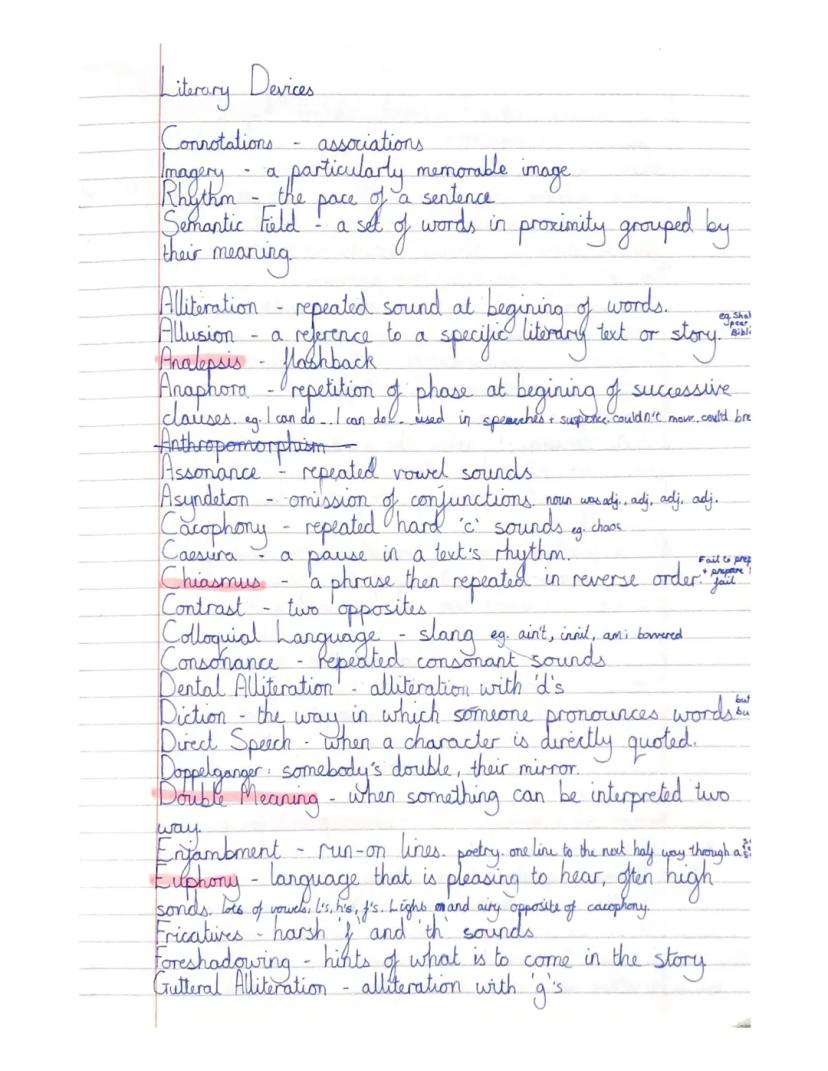 Literary Devices
Connotations - associations
Imagery - a particularly memorable image
Rhythm - the pace of a sentence
Semantic Field - a set of words in proximity grouped by
their meaning.
Alliteration - repeated sound at begining of words.
Allusion - a reference to a specific literary text or story. eg Shak
spear
Bible
Analepsis - flashback
Anaphora - repetition of phase at begining of successive
clauses. eg. I can do... I can do... used in speaches + suspence. couldn't move, could bre
Anthropomorphism
Assonance - repeated vowel sounds
Asyndeton - omission of conjunctions. noun was adj, adj, adj, adj.
Cacophony - repeated hard 'c' sounds eg. chaos
Caesura - a pause in a text's rhythm.
Chiasmus - a phrase then repeated in reverse order. Fail to prep
+ prepare
fail
Contrast - two opposites
Colloquial Language - slang eg. ain't, innit, am i bovvered
Consonance - repeated consonant sounds
Dental Alliteration - alliteration with 'd's
Diction - the way in which someone pronounces words but
bu
Direct Speech - when a character is directly quoted.
Doppelganger: somebody's double, their mirror.
Double Meaning - when something can be interpreted two
way.
Enjambment - run-on lines. poetry. one line to the next half way through a
Euphony - language that is pleasing to hear, often high
sonds. lots of vowels, l's, h's, f's. Light and airy opposite of cacophony.
Fricatives - harsh 'f' and 'th' sounds
Foreshadowing - hints of what is to come in the story
Gutteral Alliteration - alliteration with 'g's